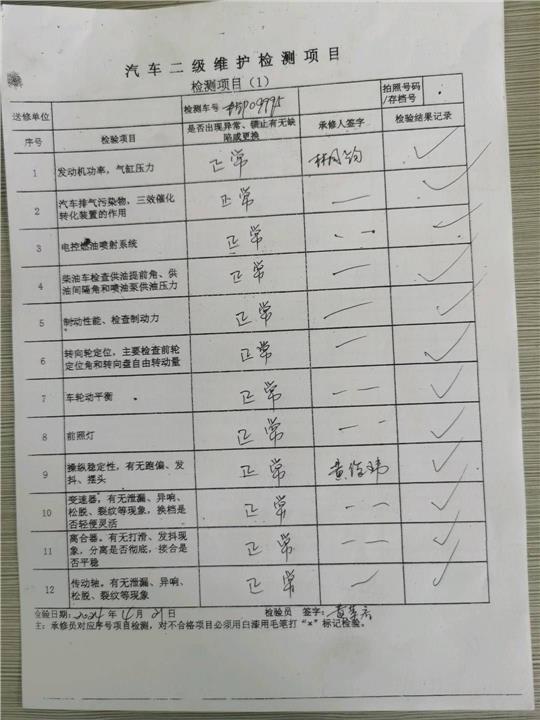 汽车二级维护检测项目
检测项目（1）
送修单位 检测车号 拍照号码/存档号
序号 检验项目 是否出现异常、锁止有无缺陷或更换 承修人签字 检验结果记录
1 发动机功率，气缸压力 正常 ✓
2 汽车排气污染物，三效催化转化装置的作用 正常 — ✓
3 电控燃油喷射系统 正常 — ✓
4 柴油车检查供油提前角、供油间隔角和喷油泵供油压力 正常 — ✓
5 制动性能、检查制动力 正常 — ✓
6 转向轮定位，主要检查前轮定位角和转向盘自由转动量 正常 — ✓
7 车轮动平衡 正常 — — ✓
8 前照灯 正常 — — ✓
9 操纵稳定性，有无跑偏、发抖、摆头 正常 ✓
10 变速器，有无泄漏、异响、松脱、裂纹等现象，换档是否轻便灵活 正常 — — ✓
11 离合器。有无打滑、发抖现象，分离是否彻底，接合是否平稳 正常 — — ✓
12 传动轴，有无泄漏、异响、松脱、裂纹等现象 正常 — ✓
检验日期：2024年4月21日 检验员 签字：
主：承修员对应序号项目检测，对不合格项目必须用白漆用毛笔打“×”标记检验。